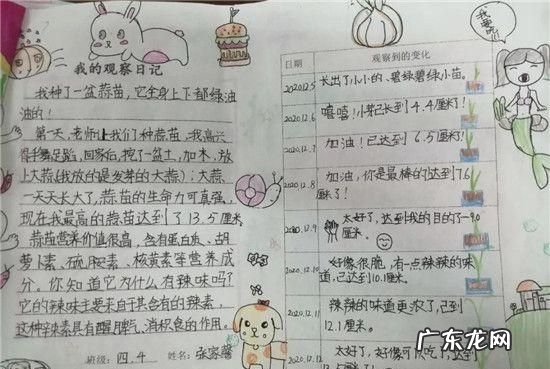 我的观察日记
我种了一盆蒜苗,它全身上下都绿油
油的!
第一天,老师让我们种蒜苗,我高兴
得手舞足蹈,回家后,挖了一盆土,加水,放
上大蒜(我放的是发芽的大蒜);大蒜
一天天长大了,蒜苗的生命力可真强,
现在我最高的蒜苗达到了13.5厘米
蒜苗营养价值很高,含有蛋白质、胡
萝卜素、硫胺素、核黄素等营养成
分。你知道它为什么有辣味吗?
它的辣味主要来于其含有的辣素,
这种辣素具有醒脾气、消积食的作用。
班级:四.4 姓名:张家馨
我
日期 观察到的变化
2020.12.5 长出了小小的、碧绿碧绿小苗。
2020.12.6 嘻嘻!小芽已长到4.4厘米了!
2020.12.7 加油!已达到6.5厘米!
2020.12.8 加油,你是最棒的达到7.6
厘米了!
2020.12.9 太好了,达到我的目的了—9.0
厘米。
2020.12.10 好像很脆,有一点辣辣的味
道,已达到10.1厘米。
2020.12.11 辣辣的味道更浓了,已到
12.1厘米。
2020.12.12 太好了,好像可以吃了,达到
13.5
广东龙网